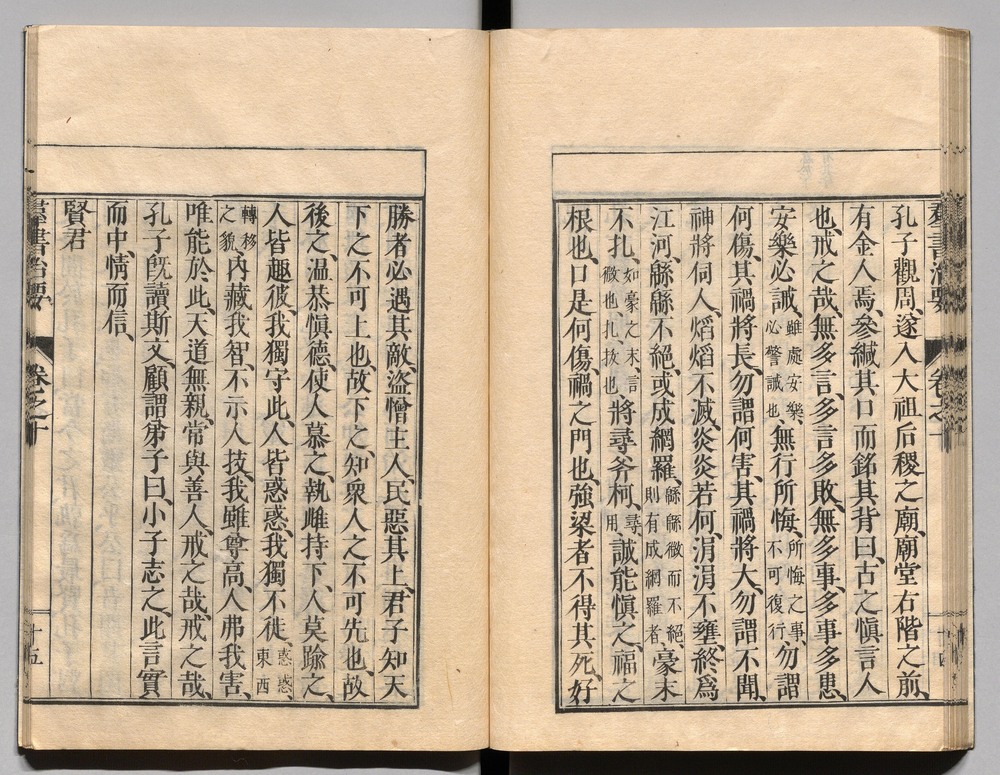 孔子觀周、遂入大祖后稷之廟、廟堂右階之前、
有金人焉、參緘其口而銘其背曰、古之愼言人
也、戒之哉、無多言、多言多敗、無多事、多事多患、
安樂必誡、雖處安樂、必警誡也、無行所悔、所悔之事、不可復行、勿謂
何傷、其禍將長、勿謂何害、其禍將大、勿謂不聞、
神將伺人、熖熖不滅、炎炎若何、涓涓不壅、終爲
江河、緜緜不絕、或成網羅、緜緜微而不絕、則有成網羅者、豪末
不扎、如豪之末、言微也、扎、拔也、將尋斧柯、尋、用、誠能愼之、福之
根也、口是何傷、禍之門也、強梁者不得其死、好
勝者必遇其敵、盜憎主人、民惡其上、君子知天
下之不可上也、故下之、知衆人之不可先也、故
後之、温恭愼德、使人慕之、執雌持下、人莫踰之、
人皆趣彼、我獨守此、人皆惑惑、我獨不徙、惑惑、東西
轉移之貌、內藏我智、不示人技、我雖尊高、人弗我害、
唯能於此、天道無親、常與善人、戒之哉、戒之哉、
孔子旣讀斯文、顧謂弟子曰、小子志之、此言實
而中、情而信、
賢君
羣書治要
卷之十
十五